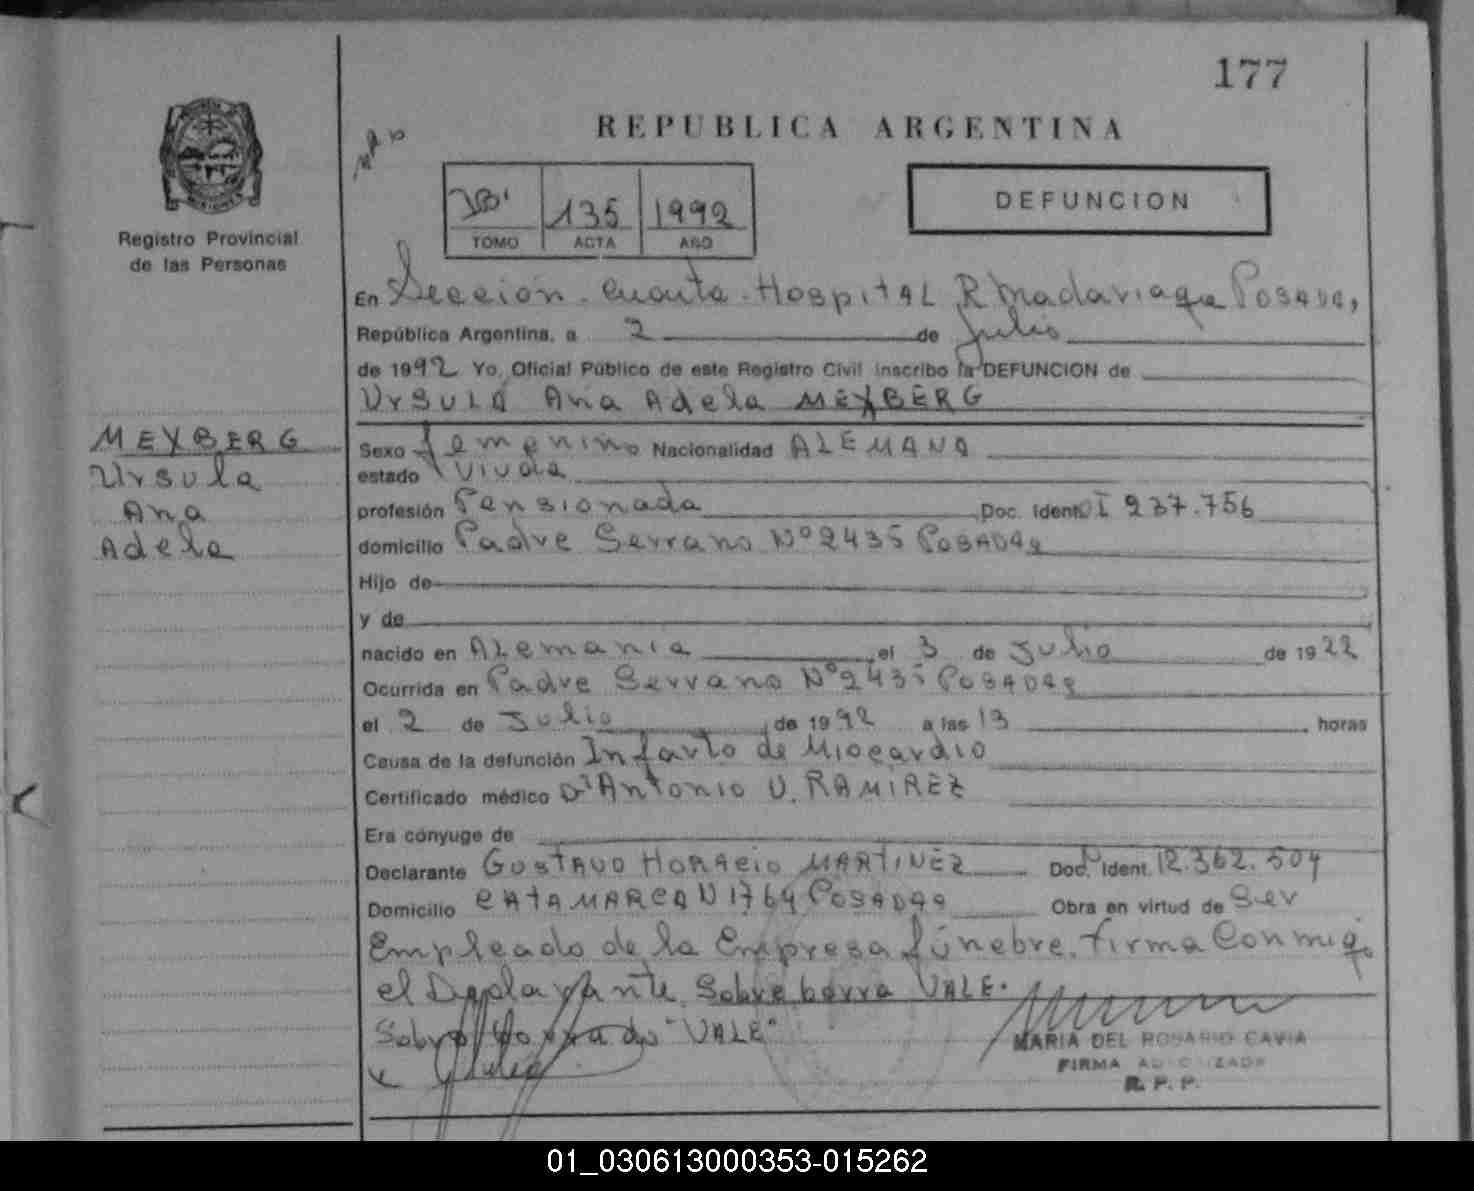 177
REPUBLICA ARGENTINA
135 1992
TOMO ACTA AÑO
DEFUNCION
Registro Provincial
de las Personas
En Sección Cuarta Hospital R Madariaga Posadas,
República Argentina, a 2 de Julio
de 1992 Yo, Oficial Público de este Registro Civil inscribo la DEFUNCION de
Ursula Ana Adela MEYBERG
MEYBERG
Ursula
Ana
Adela
Sexo femenino Nacionalidad ALEMANA
estado Viuda
profesión Pensionada Doc. Ident. CI 237.756
domicilio Padre Serrano Nº 2435 Posadas
Hijo de
y de
nacido en Alemania el 3 de Julio de 1922
Ocurrida en Padre Serrano Nº 2435 Posadas
el 2 de Julio de 1992 a las 13 horas
Causa de la defunción Infarto de Miocardio
Certificado médico Dr Antonio V. RAMIREZ
Era cónyuge de
Declarante Gustavo Horacio MARTINEZ Doc. Ident. 12.362.504
Domicilio CATAMARCA N 1764 Posadas Obra en virtud de Ser
Empleado de la Empresa fúnebre. firma Conmigo
el Declarante. Sobre borra VALE.
Sobre borrado "VALE"
MARIA DEL ROSARIO CAVIA
FIRMA AUTORIZADA
R. P. P.
01_030613000353-015262